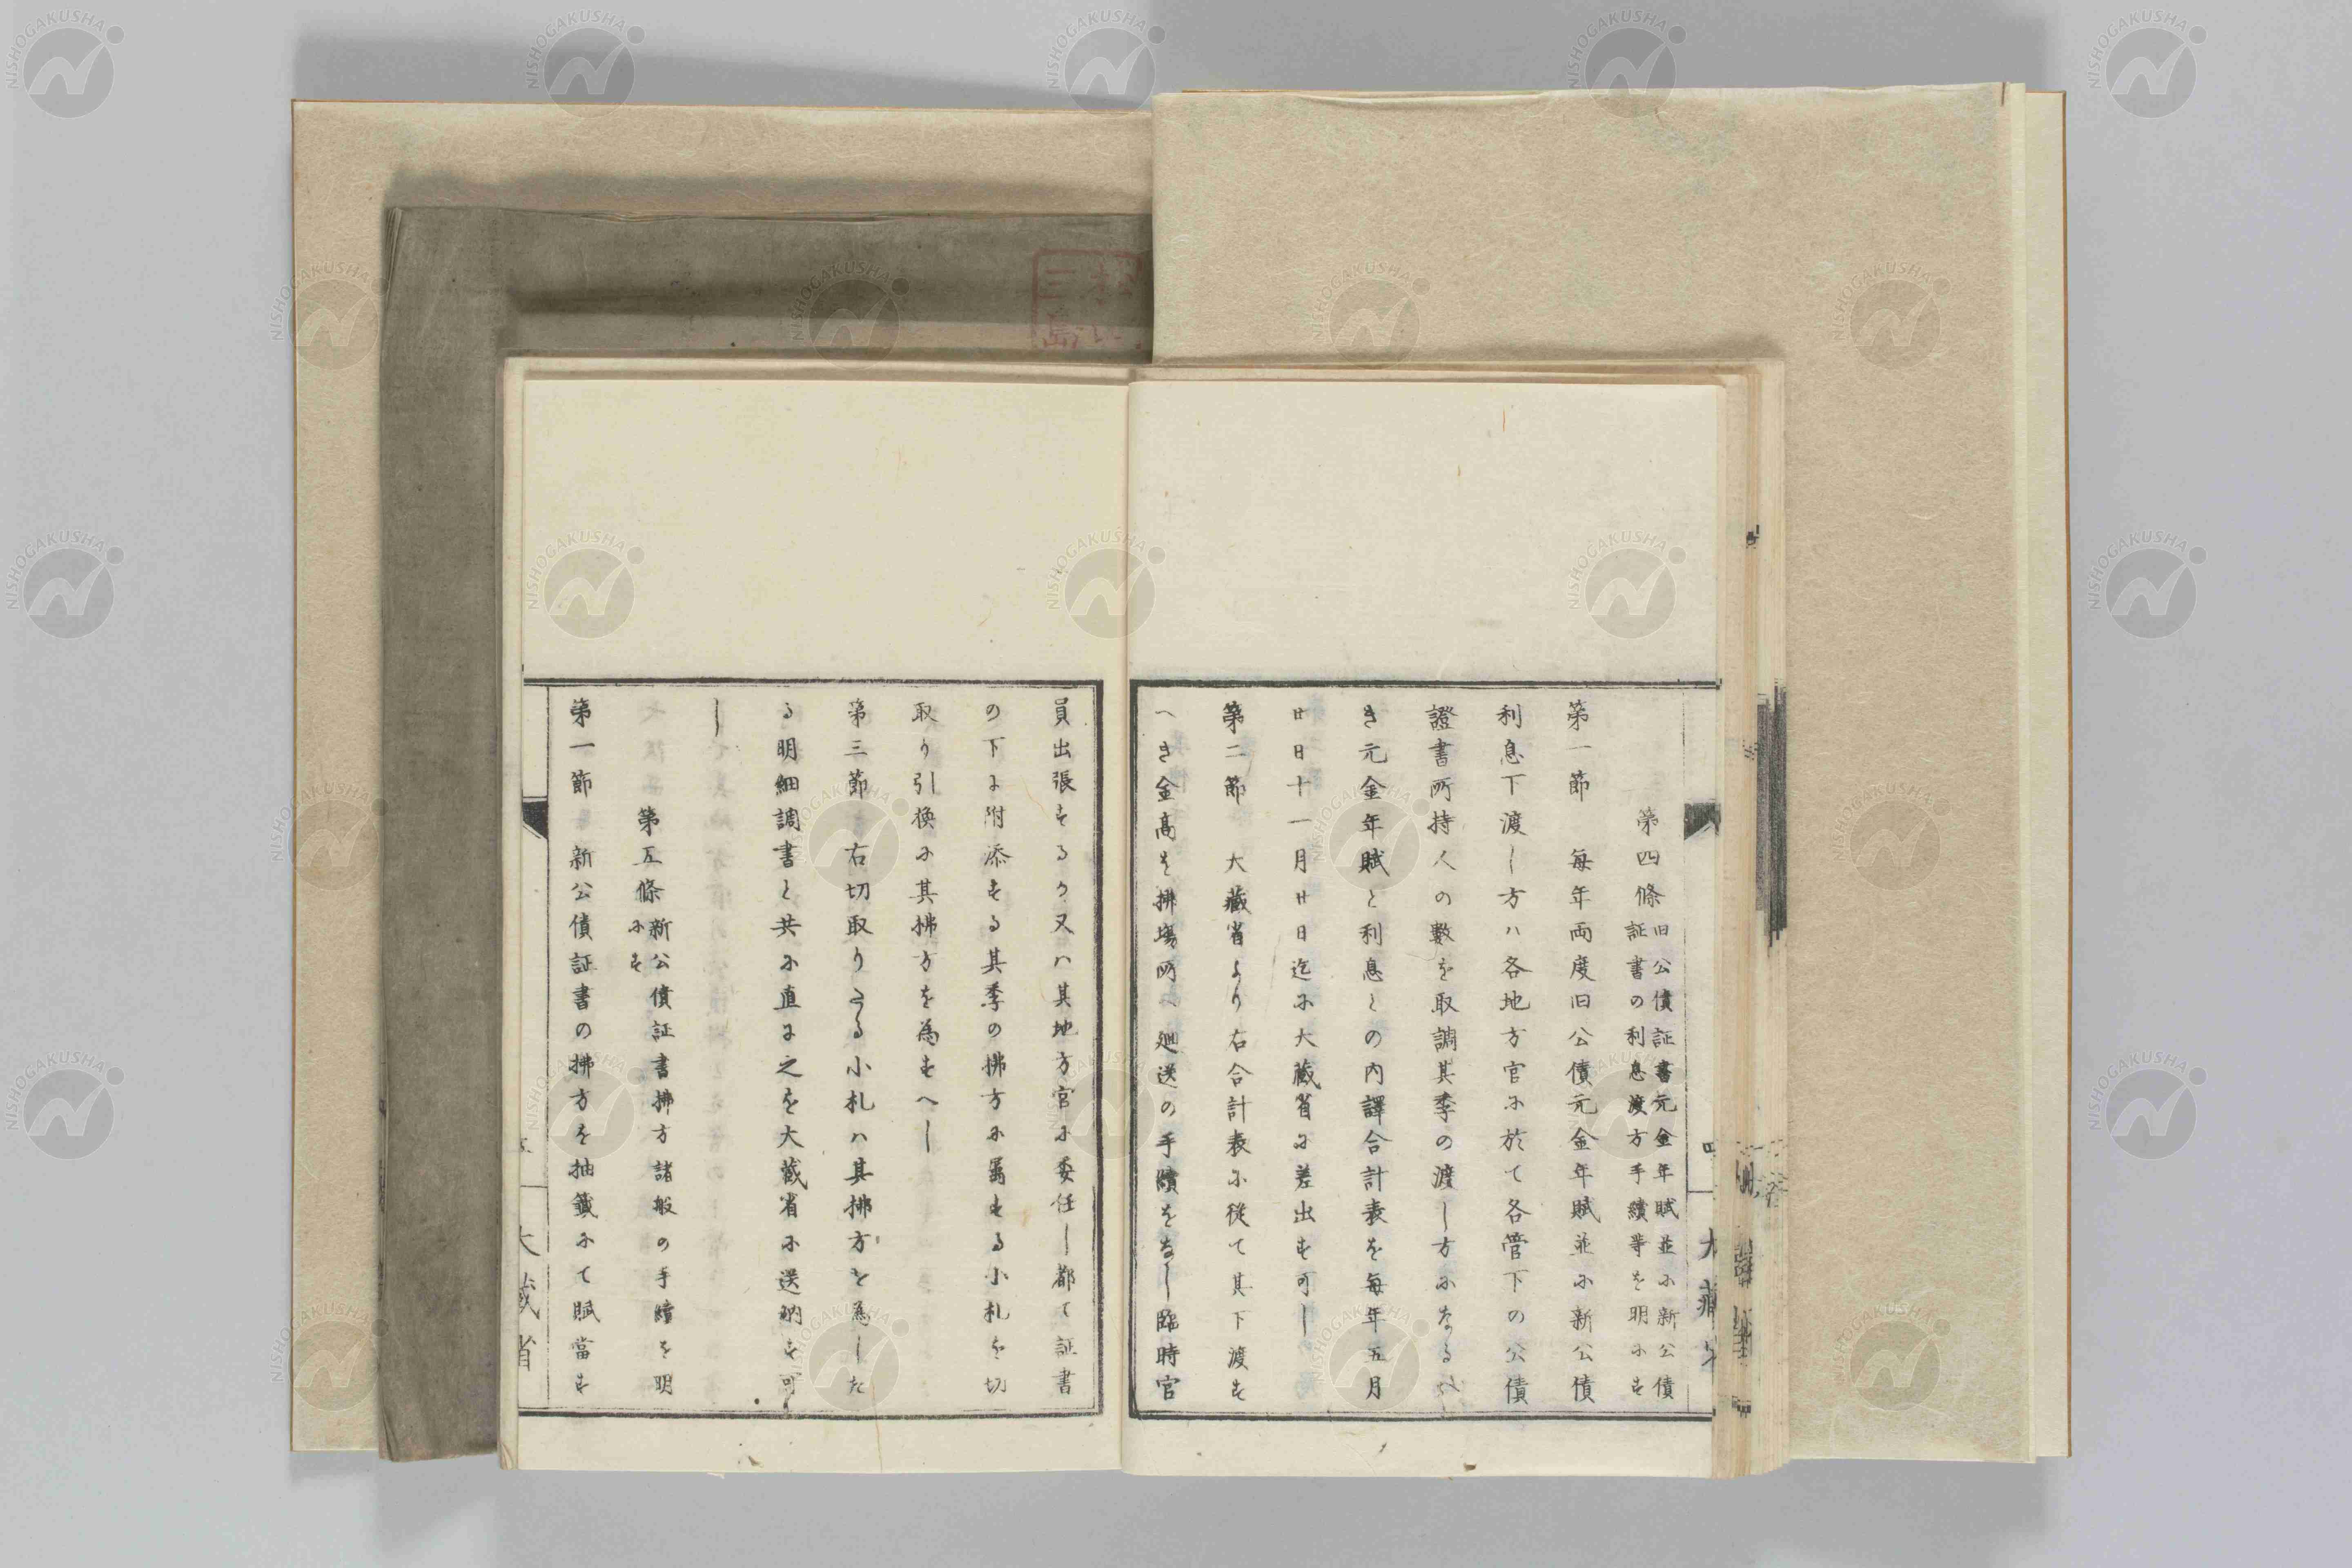 第四條 旧公債証書元金年賦並ニ新公債
証書の利息渡方手續等を明ニす
第一節 毎年両度旧公債元金年賦並ニ新公債
利息下渡し方ハ各地方官ニ於て各管下の公債
證書所持人の數を取調其季の渡し方ニなる
き元金年賦と利息との内譯合計表を毎年五月
廿日十一月廿日迄ニ大藏省ニ差出す可し
第二節 大藏省より右合計表ニ従て其下渡す
へき金高を拂場所へ廻送の手續をなし臨時官
員出張するか又ハ其地方官ニ委任し都て証書
の下ニ附添する其季の拂方ニ属する小札を切
取り引換ニ其拂方を為すへし
第三節 右切取りたる小札ハ其拂方を為した
る明細調書と共ニ直ニ之を大藏省ニ送納す可
し
第五條 新公債証書拂方諸般の手續を明
ニす
第一節 新公債証書の拂方を抽籤ニて賦當す
大藏省
三島
NISHOGAKUSHA